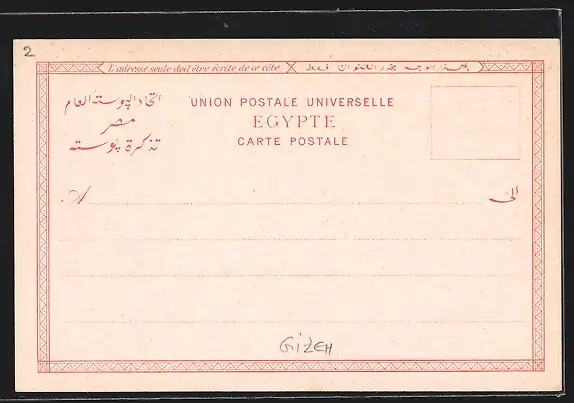 2
L'adresse seule doit être écrite de ce côté.
بهذا الوجه يحرر العنوان فقط
اتحاد البوسته العام
مصر
تذكرة بوسته
UNION POSTALE UNIVERSELLE
EGYPTE
CARTE POSTALE
A
الى
GIZEH